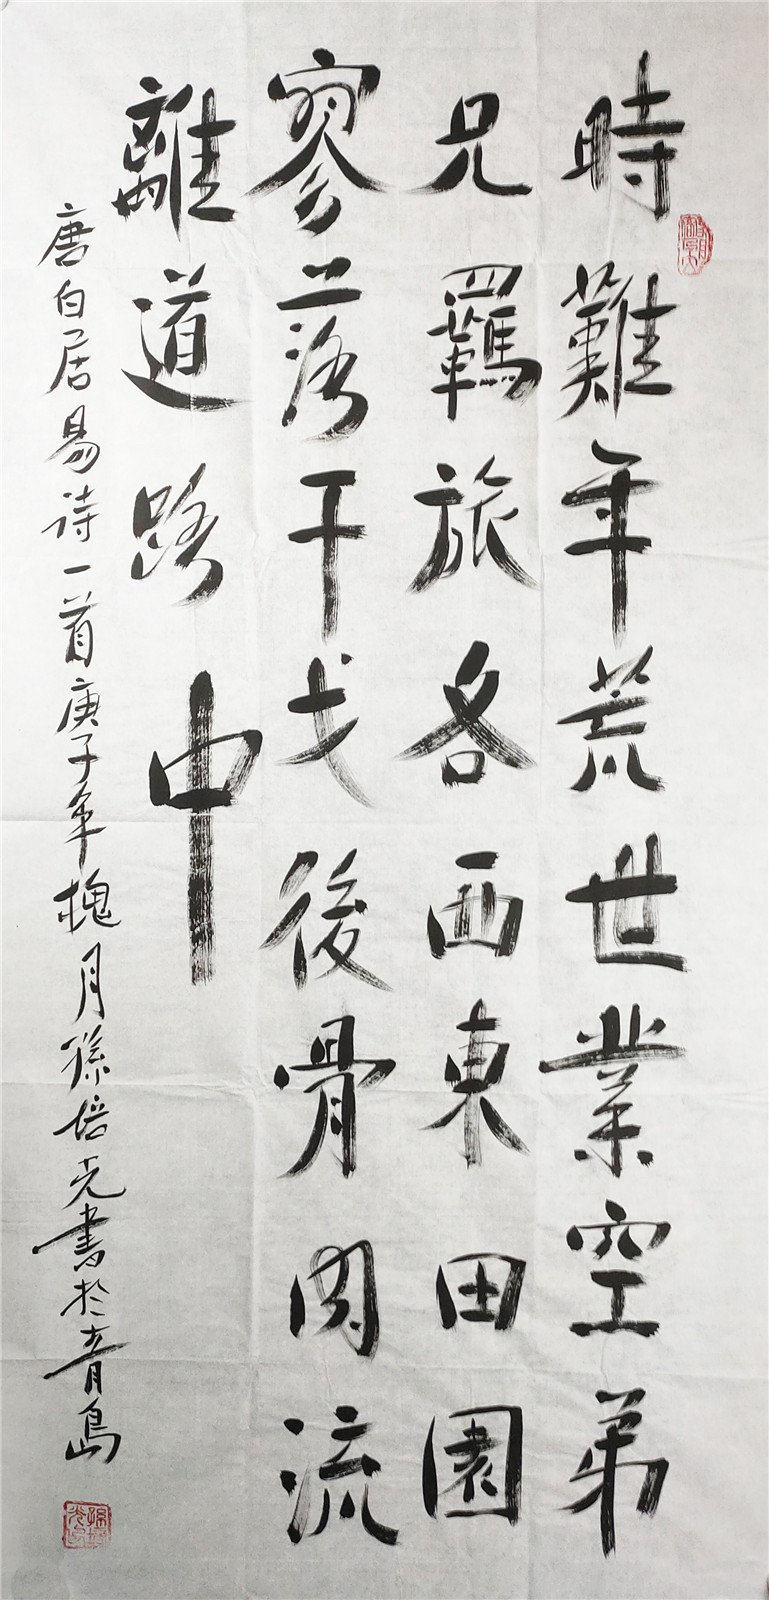 時難年荒世業空弟
兄羈旅各西東田園
寥落干戈後骨肉流
離道路中
唐白居易诗一首庚子年槐月孫培光書於青島